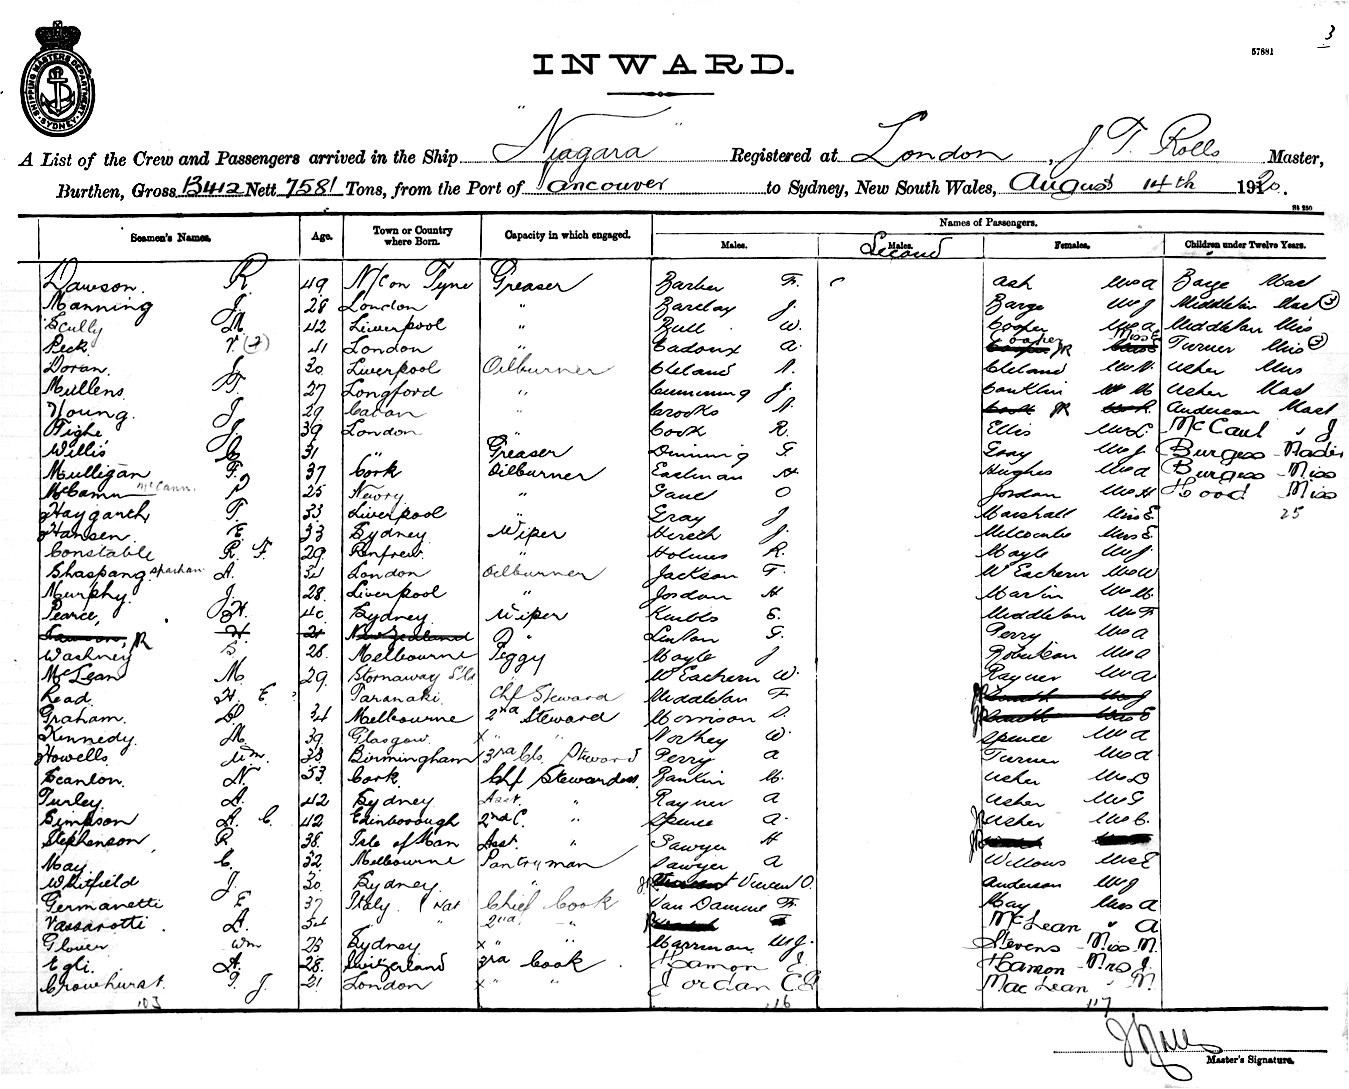 3
57881
SHIPPING MASTERS DEPARTMENT SYDNEY
INWARD.
A List of the Crew and Passengers arrived in the Ship "Niagara" Registered at London, J T. Rolls Master,
Burthen, Gross 13412 Nett 7581 Tons, from the Port of Vancouver to Sydney, New South Wales, August 14th 1920.
Seamen's Names. Age. Town or Country where Born. Capacity in which engaged. Names of Passengers.
Males. Males. Second Females. Children under Twelve Years.
Dawson. R. 49 N/Con Tyne Greaser Barber F. Ash Mrs A Bage Mast
Manning J. 28 London " Barclay J. Barge Mrs J Middleton Mast 3
Scully M. 42 Liverpool " Bull W. Cooper Mrs A Middleton Miss
Peck 41 London " Cadoux A. Cooper Miss E Turner Miss 3
Doran J 30 Liverpool Oilburner Cleland Cleland Mrs Usher Miss
Mullens T. 27 Longford " Cumming J. Conklin M Usher Mast
Young J. 29 Cavan " Crooks Anderson Mast
Tighe J. 39 London " Cook R. Ellis Mrs L. McCaul " J
Willis C 31 " Greaser Dinning G Gray Mrs J Burgess Master
Mulligan F. 37 Cork Oilburner Eastman H Hughes Mrs A Burgess Miss
McCamn McCann P 25 Newry " Gane O Jordan Mrs H Hood Miss
Haygarth T. 33 Liverpool " Gray J Marshall Miss E 25
Hansen. E 33 Sydney Wiper Hirsch J. Milcombe Miss E
Constable R. F. 29 Renfrew " Holmes R. Mayle Mrs J.
Shaspang Sparhan A. 34 London Oilburner Jackson F. McEachern Mrs W
Murphy. J. 28. Liverpool " Jordan H Martin Mrs M.
Pearce, H. 40 Sydney. Wiper Knibbs E. Middleton Mrs F
R H 21 New Zealand " Linton G. Perry Mrs A
Washney S. 28 Melbourne Peggy Mayle J Robertson Mrs A
McLean M. 29. Stornaway McEachern W. Rayner Mrs A
Read H. E. Taranaki Chf Steward Middleton F
Graham. D. 34 Melbourne 2nd Steward Morrison D.
Kennedy. M. 39 Glasgow. x " " Northey W. Spence Mrs A
Howells Wm. 33 Birmingham 3rd Cls. Steward Perry A Turner Mrs A
Scanlon. N. 53 Cork. Chf Stewardess Rankin C. Usher Mrs D
Turley. A. 42 Sydney. Asst. " Rayner A Usher Mrs G
Simpson A. C. 42 Edinborough 2nd C. " Spence A. Usher Mrs C.
Stephenson R. 38. Isle of Man Asst. " Sawyer H
May C. 32 Melbourne Pantryman Sawyer A Willows Mrs E
Whitfield J. 30. Sydney. " Vincent O. Anderson Mrs J
Germanetti E 37 Italy (Nat Chief Cook Van Damme F Hay Miss A
Vassarotti. A. 54 " " 2nd " McLean " A
Glover Wm 25 Sydney x " " Marriman W J. Stevens Miss M
Egli. A. 28. Switzerland 3rd Cook. Hamon E. Hamon Mrs J.
Crowhurst. T. J. 21 London x " " Jordan C E Mac Lean " M.
103 116 117
Master's Signature.